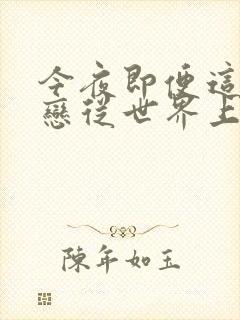 今夜即便這
戀從世界上
陳年如玉